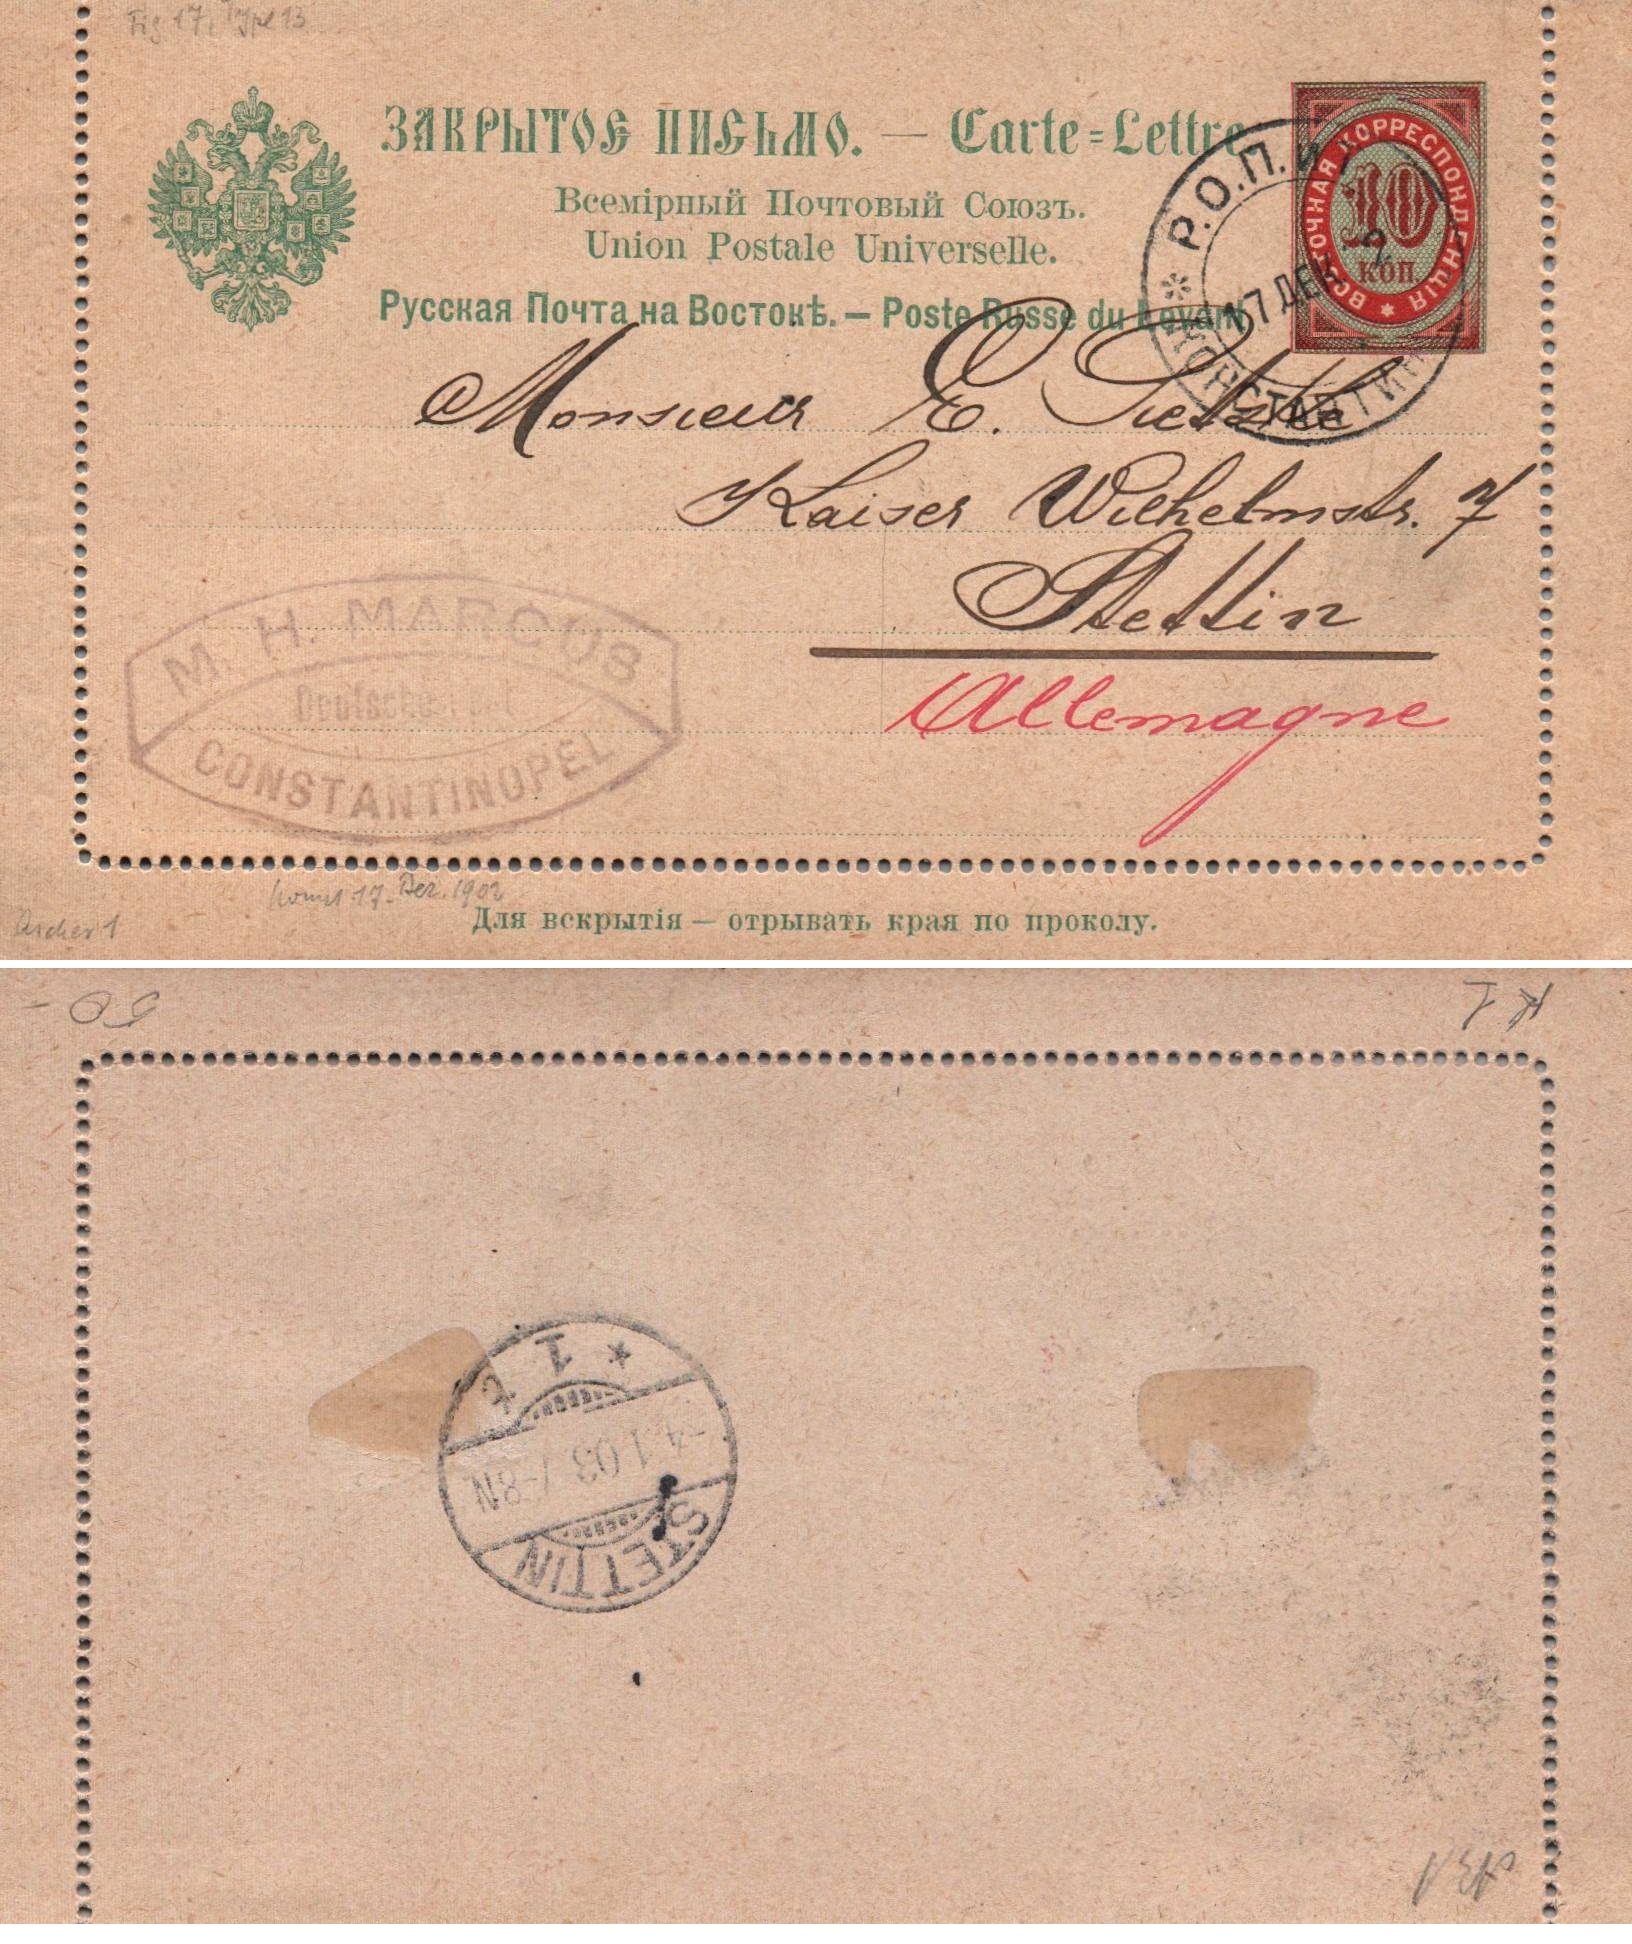 Fig 17, Type 13
ЗАКРЫТОЕ ПИСЬМО. — Carte=Lettre
Всемірный Почтовый Союзъ.
Union Postale Universelle.
Русская Почта на Востокѣ. — Poste Russe du Levant
ВОСТОЧНАЯ КОРРЕСПОНДЕНЦІЯ
10
КОП
Р.О.П.и Т.
17 ДЕК 2
КОНСТАНТИН
Monsieur E.
Kaiser Wilhelmstr. 7
Stettin
Allemagne
M. H. MARCUS
Deutsche
CONSTANTINOPEL
17. Dez. 1902
Ascher 1
Для вскрытія — отрывать края по проколу.
50-
K 1
STETTIN
-4.1.03 7-8N
* 1